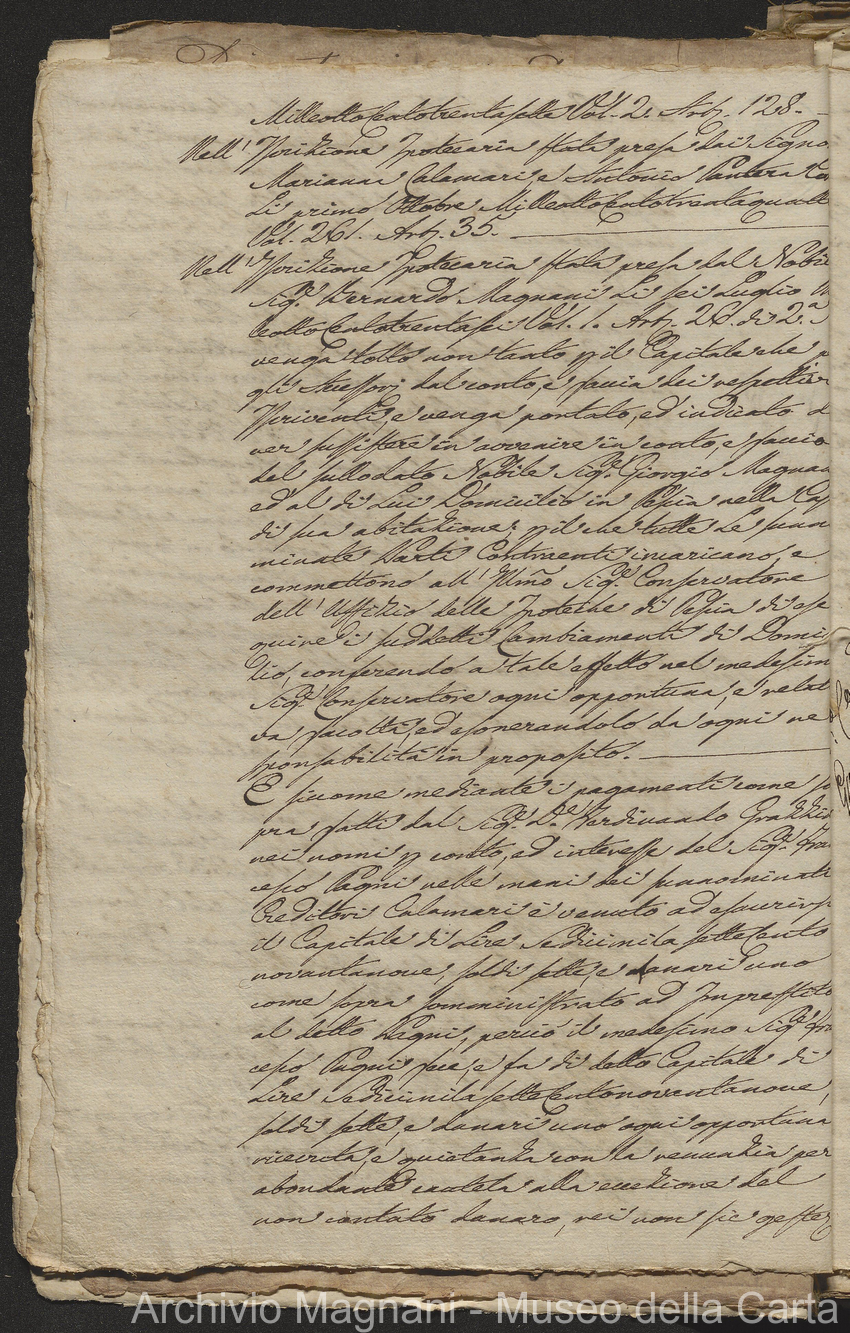 MilleottoCentotrentasette Vol. 2. Art. 128. —
Nell' Iscrizione Ipotecaria stata presa dai Signo
Marianna Calamari e Antonio Pantera
Li primo Ottobre MilleottoCentotrentaquatt
Vol. 261. Art. 35. —
Nell' Iscrizione Ipotecaria stata presa dal Nobi
Sigr. Bernardo Magnani Li sei Luglio
leottoCentotrentasei Vol. 1. Art. 26. di 2.a
venga tolto non tanto p il Capitale che p
gli accessorj dal conto, e faccia dei respettivi
Iscriventi, e venga portato, ed indicato d
ver sussistere in avvenire in conto, e faccia
del sullodato Nobile Sigr. Giorgio Magnan
ed al di Lui Domicilio in Pescia nella Cas
di sua abitazione; p il che tutte Le sum
minate Parti Contraenti incaricano, e
commettono all' Illmo Sigr. Conservatore
dell' Uffizio delle Ipoteche di Pescia di ese
guire i suddetti Cambiamenti di Domi
lio, conferendo a tale effetto nel medesim
Sigr. Conservatore ogni opportuna, e relat
va facoltà, ed esonerandolo da ogni re
sponsabilità in proposito. —
E siccome mediante i pagamenti come so
pra fatti dal Sigr. Dr. Ferdinando Grazzi
nei nomi p conto, ed interesse del Sigr. Fran
cesco Pagni nelle mani dei sunnominati
Creditori Calamari è venuto ad esaurirsi
il Capitale di Lire SedicimilasetteCento
novantanove, soldi sette, e danari uno
come sopra somministrato ad Imprestito
al detto Pagni, perciò il medesimo Sigr. Fran
cesco Pagni fece, e fa di detto Capitale di
Lire SedicimilasetteCentonovantanove,
soldi sette, e danari uno ogni opportuna
ricevuta, e quietanza con la renunzia per
abondante cautela alla eccezione del
non contato danaro, rei non sic gestae
Archivio Magnani - Museo della Carta